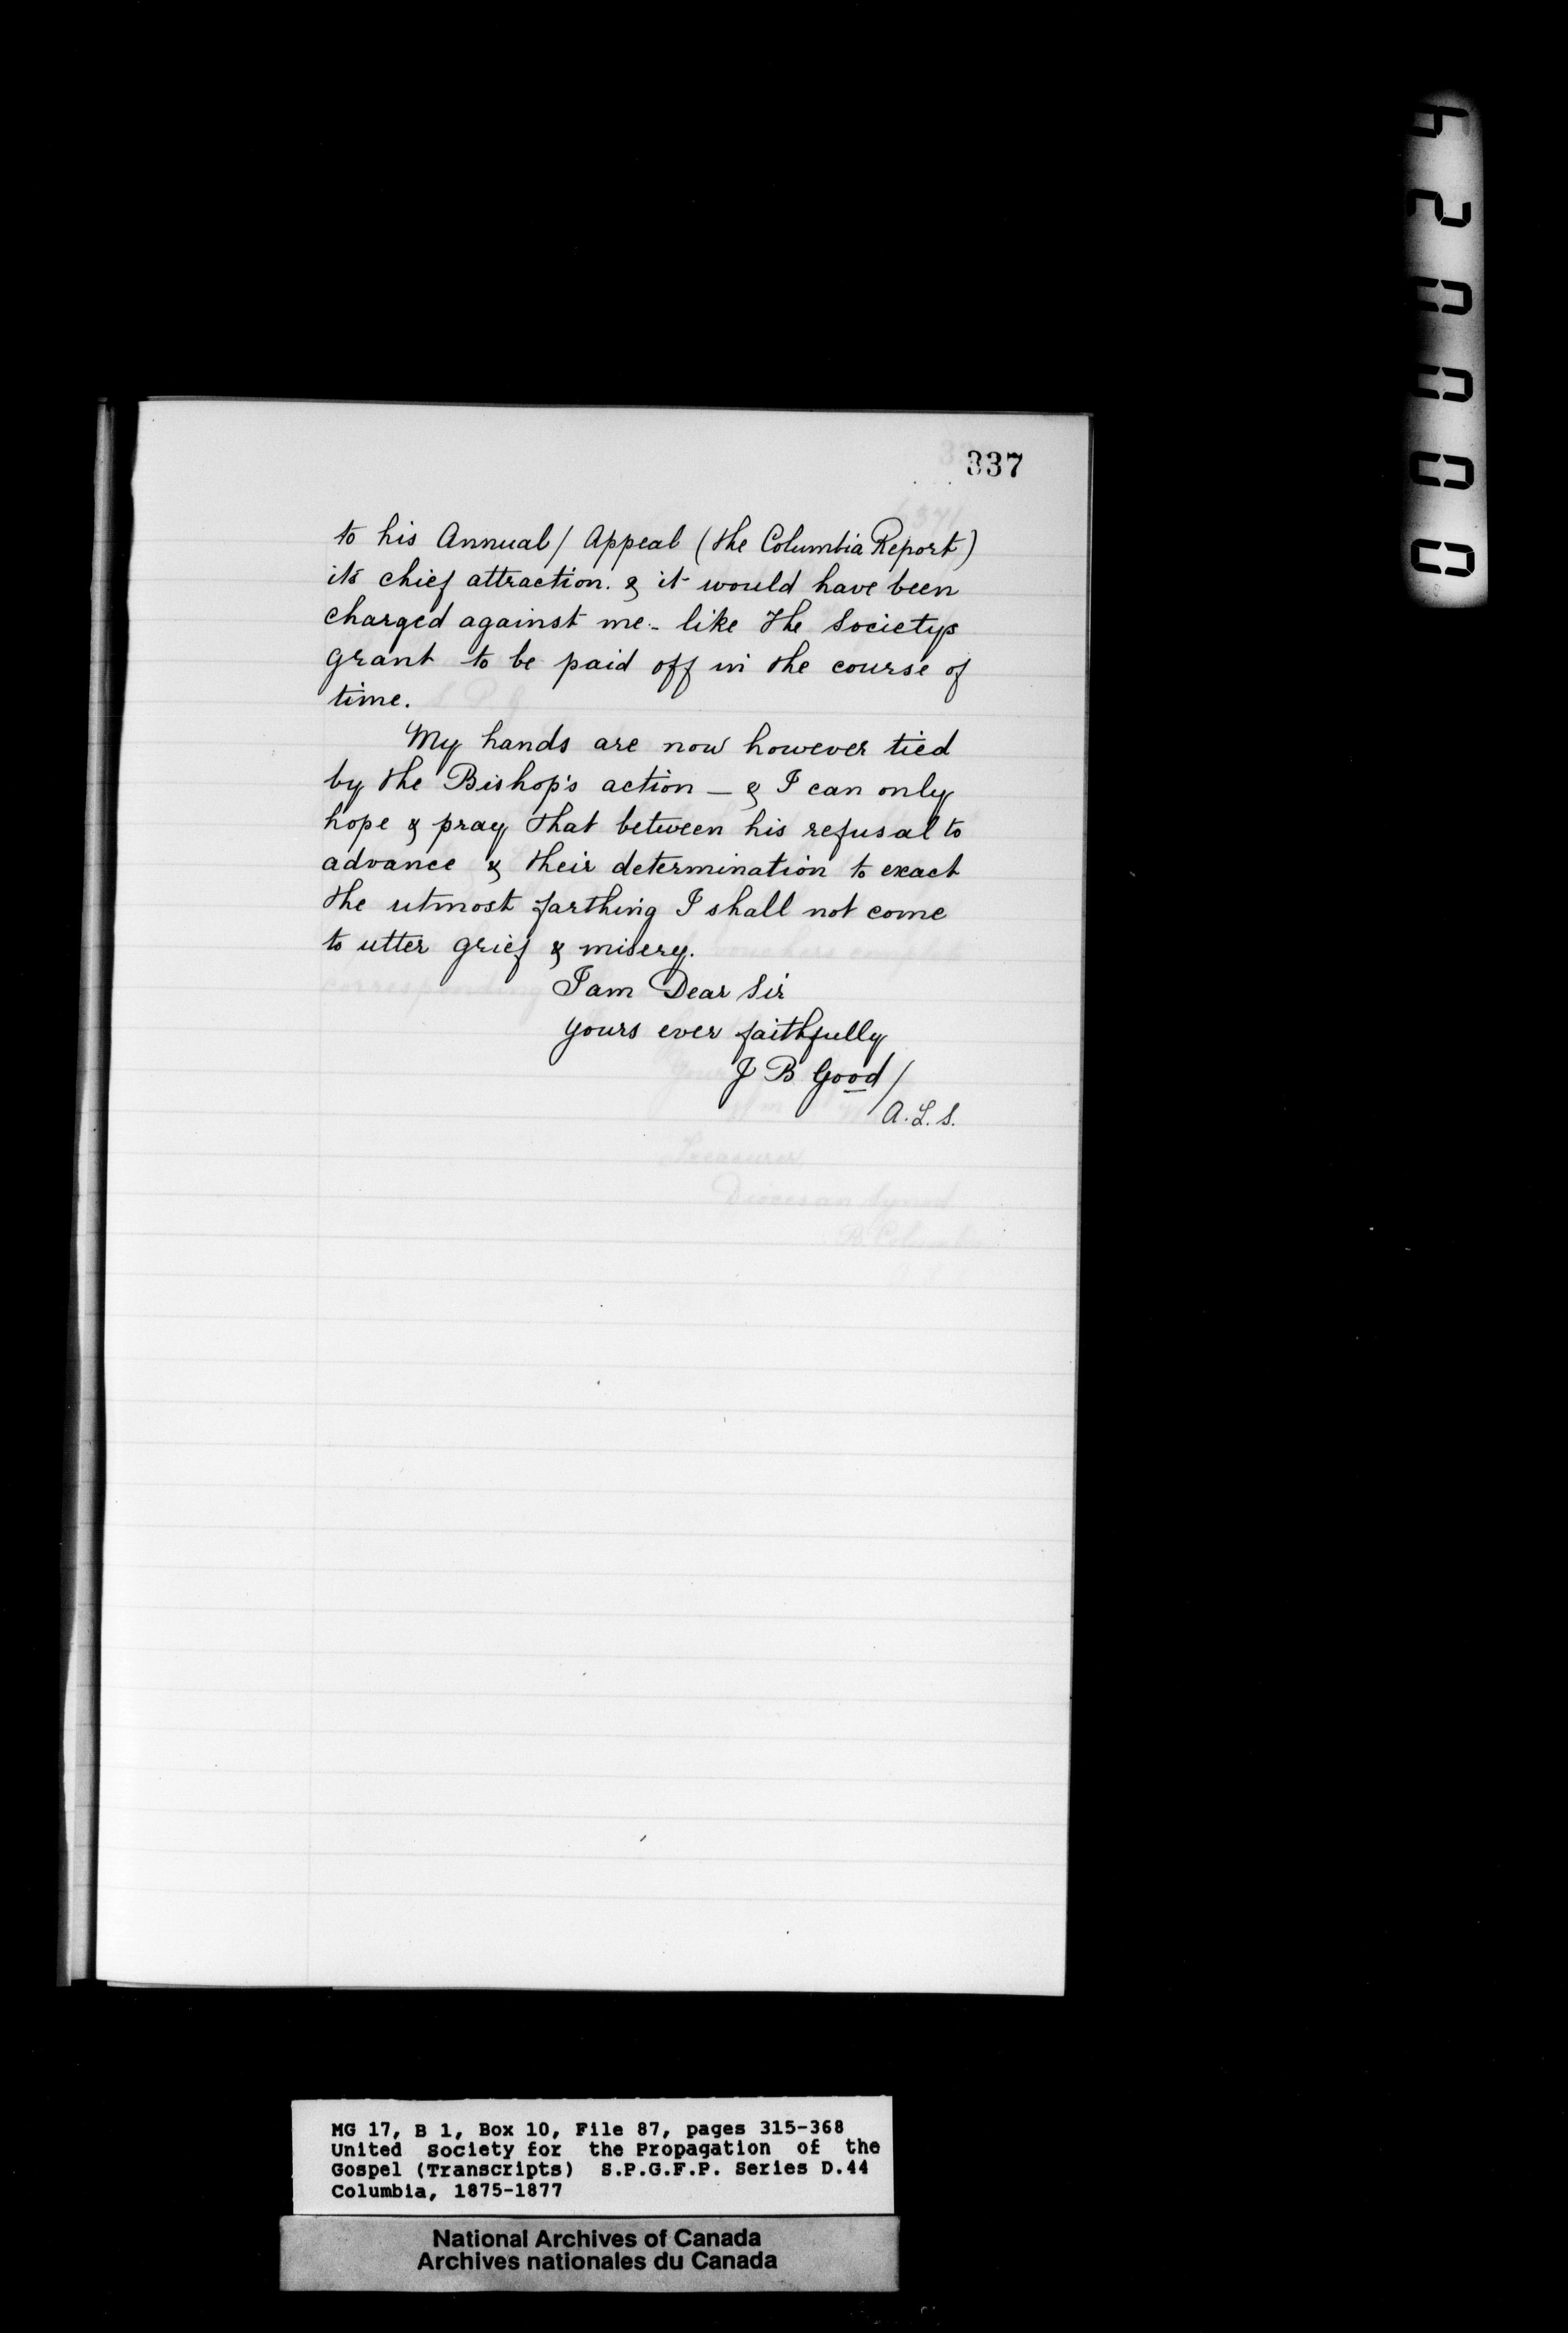 337
to his Annual / Appeal (the Columbia Report)
its chief attraction. & it would have been
charged against me - like the Societys
grant to be paid off in the course of
time.
My hands are now however tied
by the Bishop's action — & I can only
hope & pray that between his refusal to
advance & their determination to exact
the utmost farthing I shall not come
to utter grief & misery.
I am Dear Sir
yours ever faithfully
J B Good /
A. L. S.
MG 17, B 1, Box 10, File 87, pages 315-368
United Society for the Propagation of the
Gospel (Transcripts) S.P.G.F.P. Series D.44
Columbia, 1875-1877
National Archives of Canada
Archives nationales du Canada